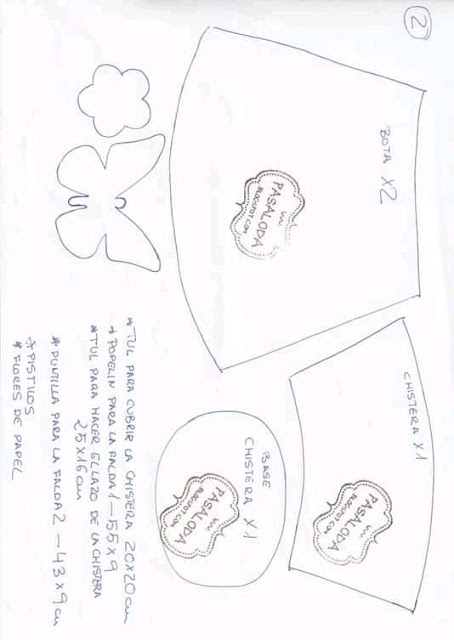 2
BOTA X2
un
PASALODA
BLOGSPOT.COM
CHISTERA X1
un
PASALODA
BLOGSPOT.COM
BASE
CHISTERA X1
un
PASALODA
BLOGSPOT.COM
* TUL PARA CUBRIR LA CHISTERA 20X20cm
* POPELIN PARA LA FALDA 1 - 55 X 9
* TUL PARA HACER EL LAZO DE LA CHISTERA
25X16cm
* PUNTILLA PARA LA FALDA 2 - 43 X 9 cm
* PISTILOS
* FLORES DE PAPEL